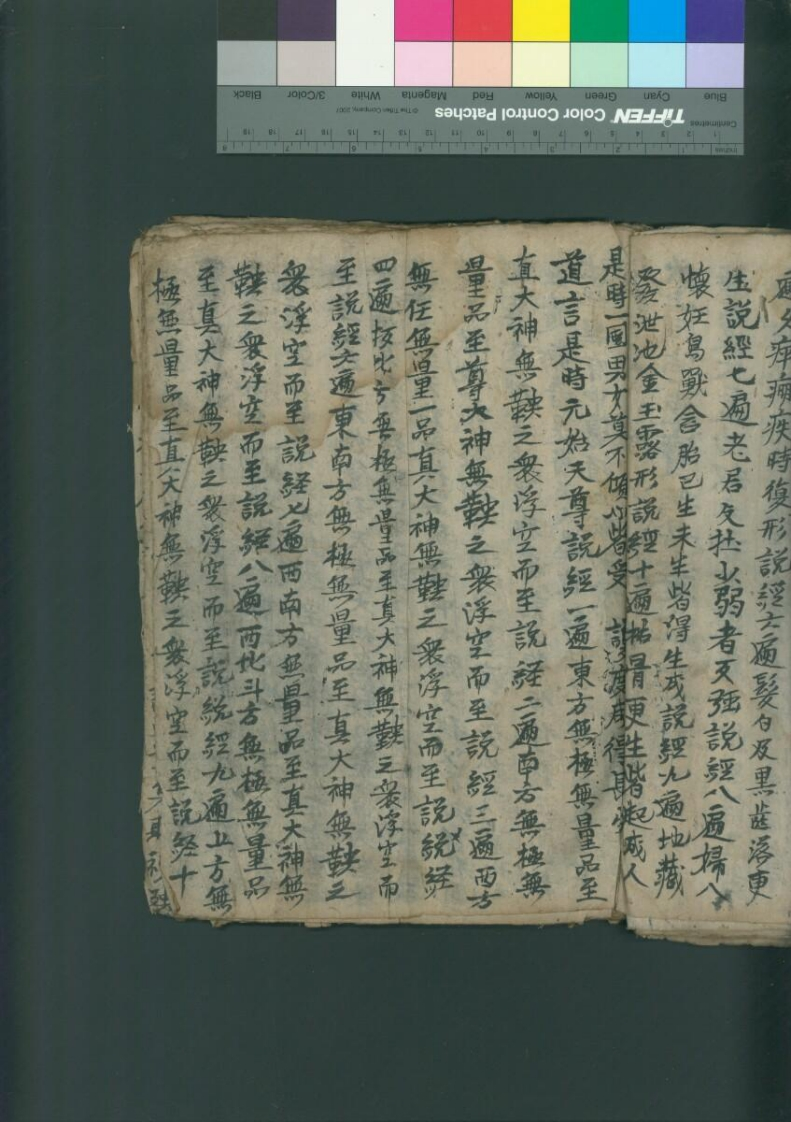 遍久痾癘疾時復形說經六遍髮白及黑齒落更
生說經七遍老君反壮少弱者更强說經八遍婦人
懷妊鳥獸含胎已生未生皆得生成說經九遍地藏
發泄池金玉露形說經十遍枯骨更生皆起成人
是時一國男女莫不傾心皆受
道言是時元始天尊說經一遍東方無極無量品至
真大神無鞅之衆浮空而至說経二遍南方無極無
量品至尊大神無鞅之衆浮空而至說經三遍西方
無任無量里一品真大神無鞅之衆浮空而至說統経
四遍按北方無極無量品至真大神無鞅之衆浮空而
至說經六遍東南方無極無量品至真大神無鞅之
衆浮空而至說経七遍西南方無量品至真大神無
鞅之衆浮空而至說經八遍西北斗方無極無量品
至真大神無鞅之衆浮空而至說統經九遍上方無
極無量品至真大神無鞅之衆浮空而至說経十
Blue Cyan Green Yellow Red Magenta White 3/Color Black
TIFFEN Color Control Patches
© The Tiffen Company, 2007
Centimetres 1 2 3 4 5 6 7 8 9 10 11 12 13 14 15 16 17 18 19
Inches 1 2 3 4 5 6 7 8